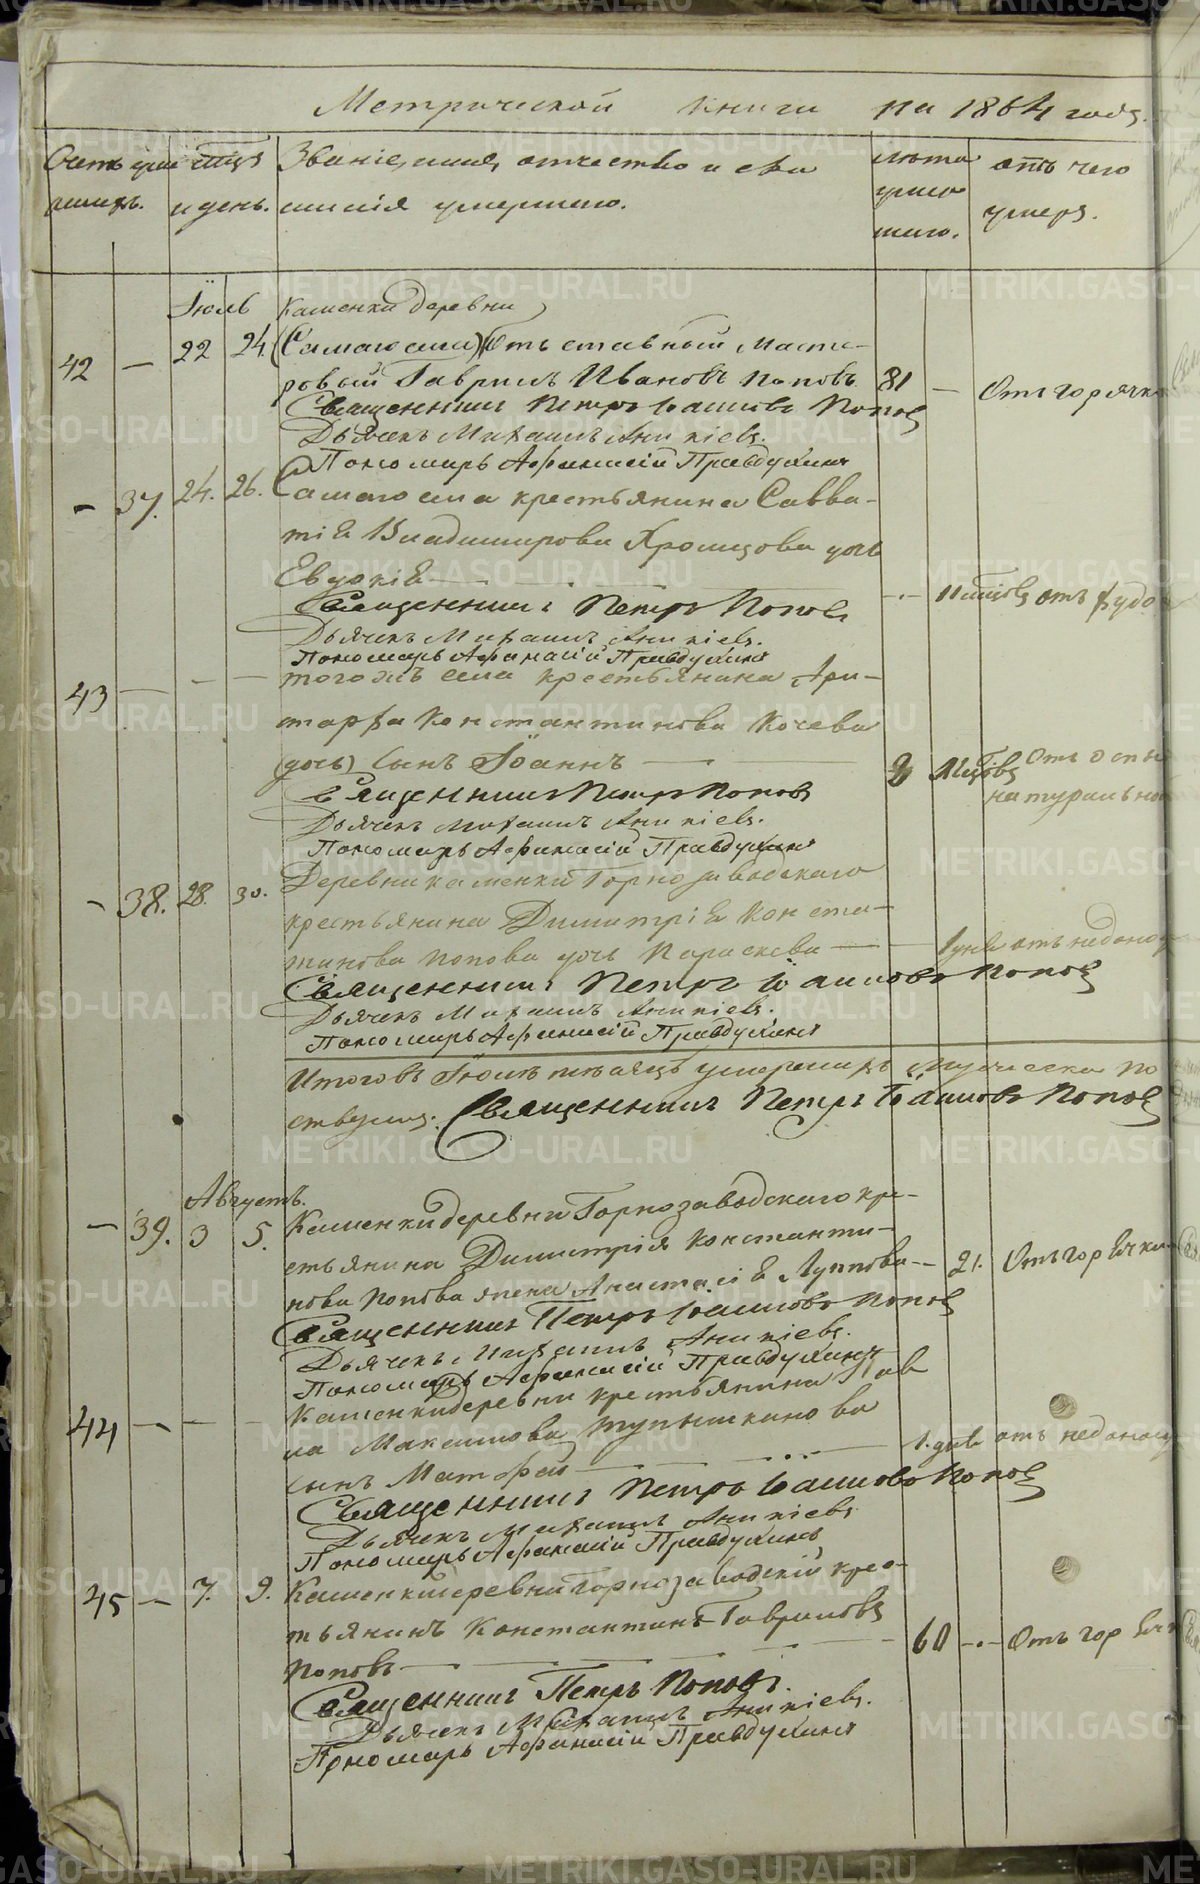 Метрической книги на 1864 годъ.
Счетъ умер мсцъ Званіе, имя, отчество и фа лѣта отъ чего
шихъ. и день. милія умершаго. умер умеръ.
шаго.
Іюль Каменки деревни
42 — 22 24. (Самаго села) Отъ ставный масте-
ровый Гавриилъ Ивановъ Поповъ 81 — Отъ горячки
Священникъ Петръ Іоанновъ Поповъ
Дьячекъ Михаилъ Аникіевъ.
Пономарь Афанасій Правдухинъ
— 37. 24. 26. Самаго села крестьянина Савва-
тія Владимирова Хромцова дочь
Евдокія — — — —.— отъ худо
Священникъ Петръ Поповъ
Дьячекъ Михаилъ Аникіевъ.
Пономарь Афанасій Правдухинъ
43 — — — Тогожъ села крестьянина Ари-
старха Константинова Кочева
(дочь) сынъ Іоаннъ — — 2 мѣсяцовъ Отъ оспы
натуральной
Священникъ Петръ Поповъ
Дьячекъ Михаилъ Аникіевъ.
Пономарь Афанасій Правдухинъ
— 38. 28. 30. Деревни Каменки Горнозаводскаго
крестьянина Димитрія Конста-
тинова Попова дочь Параскева — — 1 дня отъ недонос
Священникъ Петръ Іоанновъ Поповъ
Дьячекъ Михаилъ Аникіевъ.
Пономарь Афанасій Правдухинъ
Итого въ Іюлѣ мѣсяцѣ умершихъ мужеска по
Священникъ Петръ Іоанновъ Поповъ
Августъ.
— 39. 3 5. Каменки деревни Горнозаводскаго кре-
стьянина Димитрія Константи-
нова Попова жена Анастасія Луппова — — 21. Отъ горячки
Священникъ Петръ Іоанновъ Поповъ
Дьячекъ Михаилъ Аникіевъ.
Пономарь Афанасій Правдухинъ
44 — — — Каменки деревни крестьянина Пав
ла Максимова Тупышкинова
сынъ Матфей — — 1. дня отъ недонос
Священникъ Петръ Іоанновъ Поповъ
Дьячекъ Михаилъ Аникіевъ
Пономарь Афанасій Правдухинъ
45 — 7. 9. Каменки деревни Горнозаводскій крес-
тьянинъ Константинъ Гавриловъ
Поповъ — — — 60 —.— Отъ горячк
Священникъ Петръ Поповъ.
Дьячекъ Михаилъ Аникіевъ.
Пономарь Афанасій Правдухинъ
METRIKI.GASO-URAL.RU